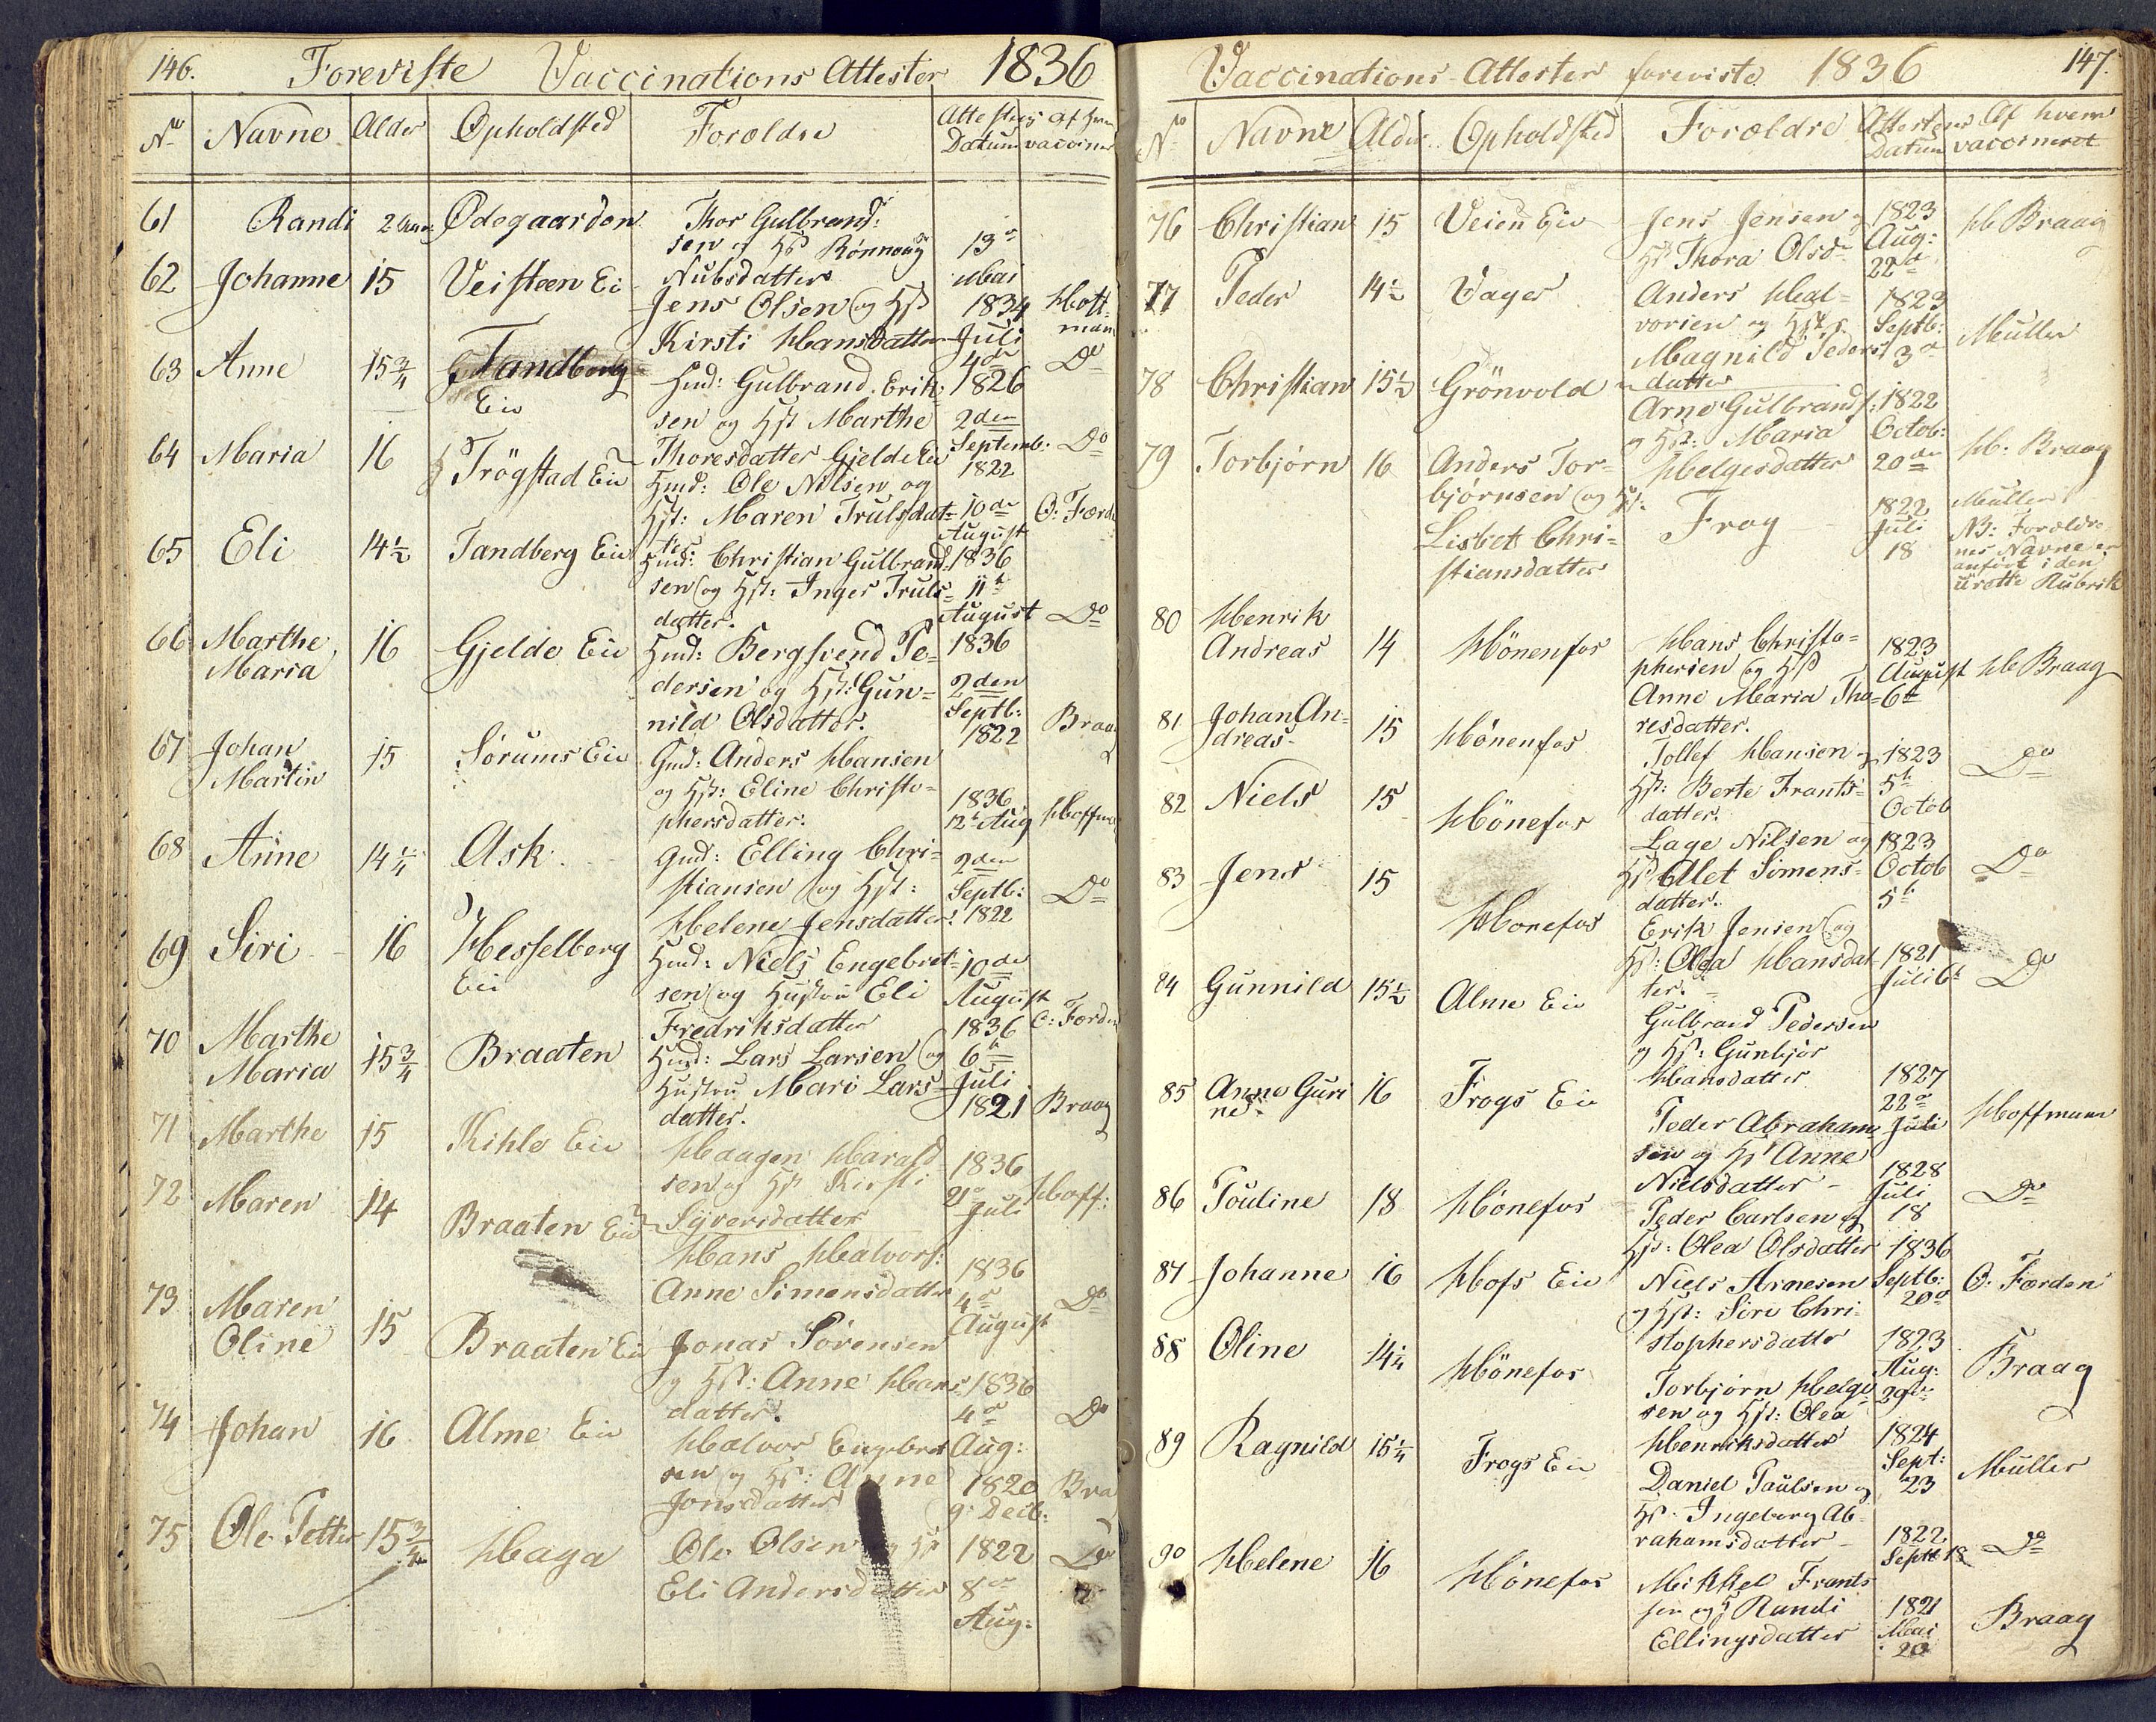 146. Foreviste Vaccinations Attester 1836
No Navne Alder Opholdsted Forældre Attestens Datum af hvem vaccineret
61 Randi 2 Ødegaarden Thor Gulbrand:
sen og Hst Rönnoug
Nubsdatter
13de Mai 1834 Hoff-
man
62 Johanne 15 Veisteen Ei Jens Olsen og Hst
Kirsti Hansdatter
Juli 4de 1826 Do
63 Anne 15 3/4 Tandberg
Eie
Hmd: Gulbrand Erik-
sen og Hst Marthe
Thoresdatter Gjelde Eie
2den
Septemb:
1822
Do
64 Maria 16 Trögstad Eie
Hmd: Ole Nilsen og
Hst: Maren Trulsdat-
ter
10de
August
1836
O: Færde
65 Eli 14 1/2 Tandberg Eie
Hmd: Christian Gulbrand-
sen og Hst: Inger Truls-
datter.
11te
August
1836
Do
66 Marthe
Maria
16 Gjelde Eie
Hmd: Bergsvend Pe-
dersen og Hst: Gun-
nild Olsdatter.
2den
Septb:
1822
Braa
67 Johan
Martin
15 Sörums Eie
Gmd: Anders Hansen
og Hst: Eline Christo-
phersdatter.
1836
12te Aug
Hoffm
68 Anne 14 1/4 Ask
Gmd: Elling Chri-
stiansen og Hst:
Helene Jensdatter:
2den
Septb:
1822
Do
69 Siri 16 Hesselberg
Eie
Hmd: Niels Engebret-
sen og Hustru Eli
Fredriksdatter
10de
August
1836
O: Førde
70 Marthe
Maria
15 3/4 Braaten
Hmd: Lars Larsen og
Hustru Mari Lars-
datter.
6te
Juli
1821
Braag
71 Marthe 15 Kihle Eie
Haagen Harald-
sen og Hst Kirsti
Syversdatter
1836
21de
Juli
Hoff:
72 Maren 14 Braaten Eie
Hans Halvors:
Anne Simensdatter
1836
4de
August
Do
73 Maren
Oline
15 Braaten Eie
Jonas Sörensen
og Hst: Anne Hans-
datter.
1836
4de
Aug:
Do
74 Johan 16 Alme Eie
Halvor Engebret
sen og Hst: Anne
Jonsdatter
1820
9: Decb:
Bra
75 Ole Petter 15 3/4 Haga
Ole Olsen og Hst
Eli Andersdatter
1822
8de
Aug:
Do
Vaccinations-Attester foreviste 1836 147.
No Navne Alder Opholdsted Forældre Attestens Datum Af hvem vaccineret
76 Christian 15 Veien Eie
Jens Jensen og
Hst Thora Olsd
1823
Aug:
22de
Hb Braag
77 Peder 14 1/2 Vager
Anders Hal-
vorsen og Hst
Magnild Peders
datter
1823
Septb:
3de
Müller
78 Christian 15 1/2 Grönvold
Arne Gulbrands:
og Hst: Maria
Helgesdatter
1822
Octob:
20de
Hb: Braag
79 Torbjørn 16 Anders Tor-
bjørnsen og Hst:
Lisbet Chri-
stiansdatter
Frog
1822
Juli
18
Müller
NB: Forældre
nes Navne er
anført i den
urette Rubrik
80 Henrik
Andreas
14 Hönenfos
Hans Christo-
phersen og Hst
Anne Maria Tho-
resdatter.
1823
August
6te
Hb Braag
81 Johan An-
dreas
15 Hönenfos
Tollef Hansen og
Hst: Berte Frants-
datter.
1823
5te
Octob
Do
82 Niels 15 Hönefos
Lage Nilsen og
Hst Allet Simens-
datter.
1823
Octob
5te
Do
83 Jens 15 Honefos
Erik Jensen og
Hst: Olea Hansdat
ter.
1821
Juli 6te
Do
84 Gunnild 15 1/2 Alme Eie
Gulbrand Pedersen
og Hst: Gunbjør
Hansdatter
1827
22de
Juli
Hoffmann
85 Anne Guri
ne
16 Frogs Eie
Peder Abraham-
sen og Hst Anne
Nielsdatter
1828
Juli
18
Do
86 Pouline 18 Hönefos
Peder Carlsen og
Hst: Olea Olsdatter
1836
Septb:
20de
O. Færden
87 Johanne 16 Hofs Eie
Niels Arnesen
og Hst: Siri Chri-
stophersdatter
1823
Aug:
29de
Braag
88 Oline 14 1/4 Hönefos
Torbjörn Helge
sen og Hst: Olea
Henriksdatter
1824
Sept:
23
Müller
89 Ragnild 15 1/4 Frogs Eie
Daniel Paulsen og
Hst: Ingeborg Ab-
rahamsdatter
1822
Septb 18
Do
90 Helene 16 Hönefos
Mikkel Frants
sen og Randi
Ellingsdatter
1821
Mai
20
Braag